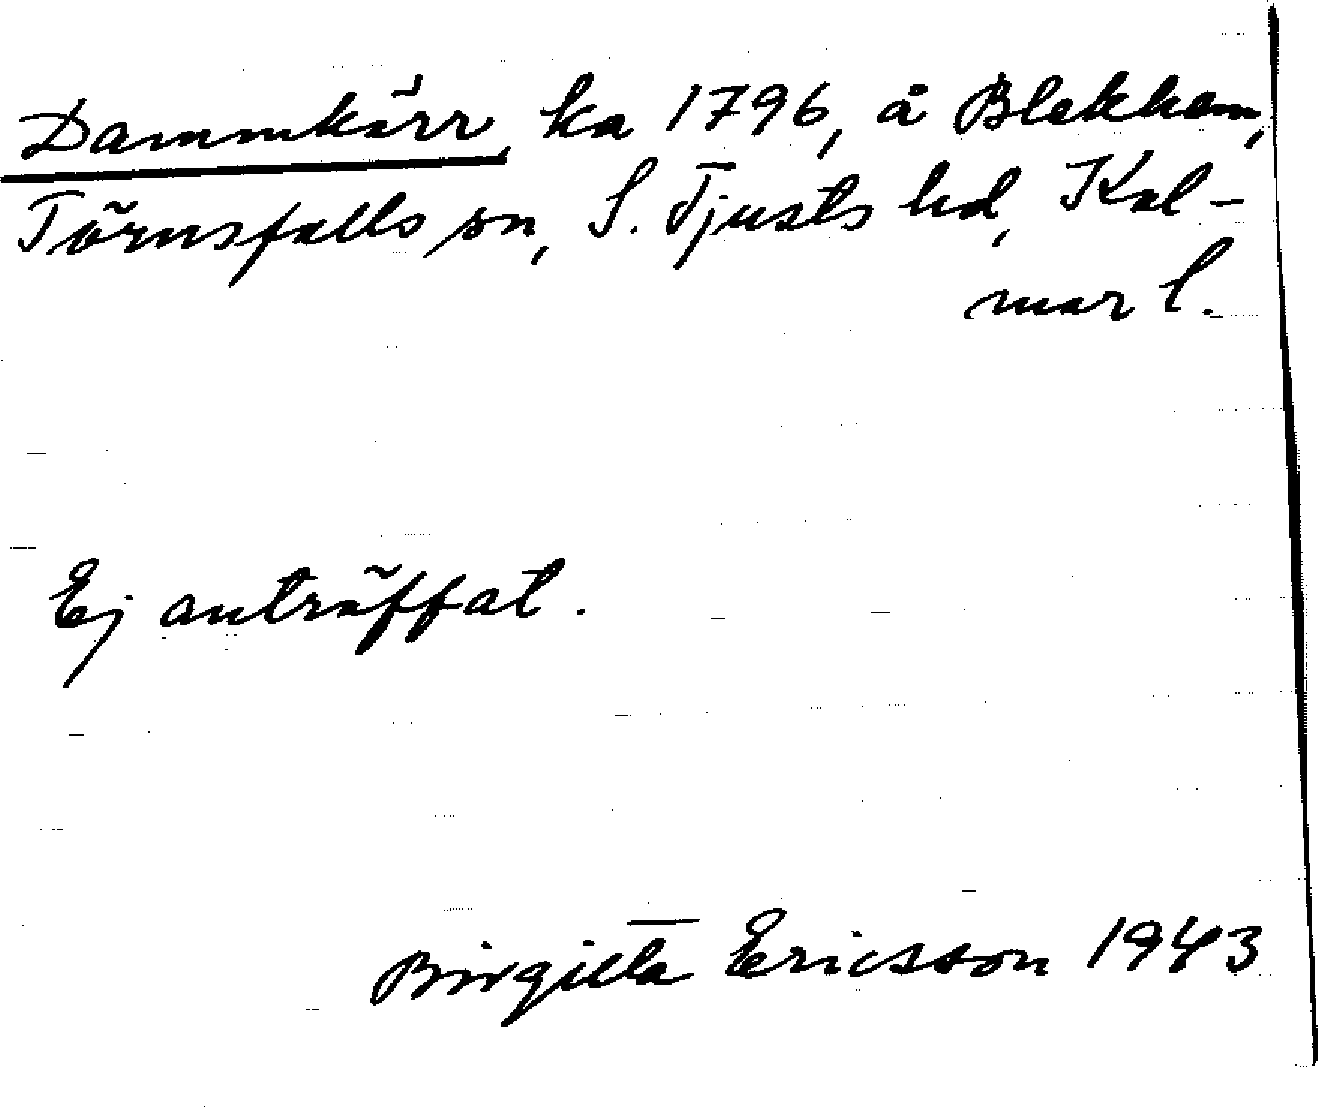 Dammkärr, ka 1796, å Blekhem,
Törnsfalls sn, S. Tjusts hd, Kal-
mar l.
Ej anträffat.
Birgitta Ericsson 1943